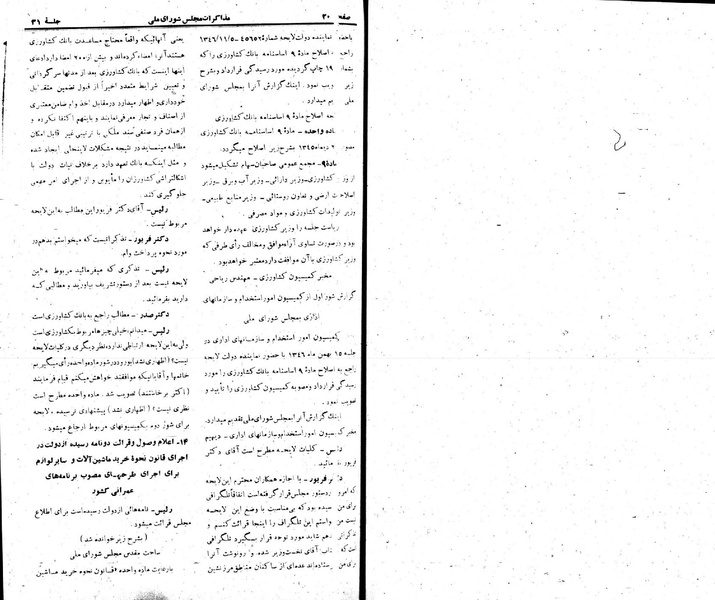 صفحه ۳۰
مذاکرات مجلس شورای ملی
جلسهٔ ۳۱
نماینده دولت لایحه شمارهٔ ۴۵۶۵۲-۱۳۴۶/۱۱/۵
اصلاح مادهٔ ۹ اساسنامه بانک کشاورزی را که
۱۹ چاپ گردیده مورد رسیدگی قرارداد و بشرح
زیر ویب نمود. اینک گزارش آنرا بمجلس شورای
ملی م میدارد.
حه اصلاح مادهٔ ۹ اساسنامه بانک کشاورزی
ده واحده - مادهٔ ۹ اساسنامه بانک کشاورزی
۲ دیماه ۱۳۴۵ بشرح زیر اصلاح میگردد.
مادهٔ ۹- مجمع عمومی صاحبان سهام تشکیل میشود
از وزیر کشاورزی- وزیر دارائی- وزیر آب و برق- وزیر
اصلاحات ارضی و تعاون روستائی- وزیر منابع طبیعی-
وزیر تولیدات کشاورزی و مواد مصرفی.
ریاست جلسه را وزیر کشاورزی عهده دار خواهد
بود و در صورت تساوی آراء موافق و مخالف رأی طرفی که
وزیر کشاورزی با آن موافقت دارد معتبر خواهد بود.
مخبر کمیسیون کشاورزی- مهندس ریاحی
گزارش شور اول از کمیسیون امور استخدام و سازمانهای
اداری بمجلس شورای ملی
کمیسیون امور استخدام و سازمانهای اداری در
جلسه ۱۵ بهمن ماه ۱۳۴۶ با حضور نماینده دولت لایحه
راجع به اصلاح مادهٔ ۹ اساسنامه بانک کشاورزی را مورد
رسیدگی قرارداد و مصوبه کمیسیون کشاورزی را تأیید و
تصویب نمود.
اینک گزارش آنرا بمجلس شورای ملی تقدیم میدارد.
مخبر کمیسیون امور استخدام و سازمانهای اداری- دیهیم
کلیات لایحه مطرح است آقای دکتر
فریور مائید.
فریور- با اجازه همکاران محترم این لایحه
که امرو دستور مجلس قرار گرفته است اتفاقاً تلگرافی
برای من سیده بود که بی مناسبت با وضع این لایحه
نیست من واستم این تلگراف را اینجا قرائت کنم و
هم شاید مورد توجه قرار بگیرد تلگرافی
است که ناب آقای نخست وزیر شده و رونوشت آنرا
برای من ستاده اند عده ای از ساکنان مناطق مرز نشین
یعنی آنهائیکه واقعاً محتاج مساعدت بانک کشاورزی
هستند آنرا امضاء کرده اند و بیش از ۲۰۰ امضا دارد ادعای
اینها اینست که بانک کشاورزی بعد از مدتها سرگردانی
و تعیین شرایط متعدد اخیراً از قبول تضمین متقابل
خودداری و اظهار میدارد در مقابل اخذ وام ضامن معتبری
از اصناف و تجار معرفی نمایند و باینهم اکتفا نکرده و
از همان فرد صنفی سند ملکی با ترتیبی غیر قابل امکان
مطالبه مینماید در نتیجه مشکلات لاینحلی ایجاد شده
و مثل اینکه بانک تعهد دارد برخلاف نیات دولت با
اشکالتراشی کشاورزان را مأیوس و از اجرای امر مهمی
جلوگیری کند.
رئیس- آقای دکتر فریور این مطالب به این لایحه
مربوط نیست.
دکتر فریور- تذکراتیست که میخواستم بدهم در
مورد نحوه پرداخت وام.
رئیس- تذکری که میفرمائید مربوط به این
لایحه نیست بعد از دستور تشریف بیاورید و مطالبی که
دارید بفرمائید.
دکتر صدر- مطالب راجع به بانک کشاورزی است
رئیس- میدانم، خیلی چیزها مربوط بکشاورزی است
ولی به این لایحه ارتباطی ندارد، نظر دیگری در کلیات لایحه
نیست؟ (اظهاری نشد) بورود در شور ماده واحده رأی میگیریم
خانمها و آقایانیکه موافقند خواهش میکنم قیام فرمایند
(اکثر برخاستند) تصویب شد. ماده واحده مطرح است
نظری نیست؟ (اظهاری نشد) پیشنهادی نرسیده. لایحه
برای شور دوم بکمیسیونهای مربوط ارجاع میشود.
۱۴- اعلام وصول و قرائت دو نامه رسیده از دولت در
اجرای قانون نحوهٔ خرید ماشین آلات و سایر لوازم
برای اجرای طرحهای مصوب برنامه های
عمرانی کشور
رئیس- نامه هائی از دولت رسیده است برای اطلاع
مجلس قرائت میشود.
(بشرح زیر خوانده شد)
ساحت مقدس مجلس شورای ملی
بارعایت ماده واحده «قانون نحوه خرید ماشین